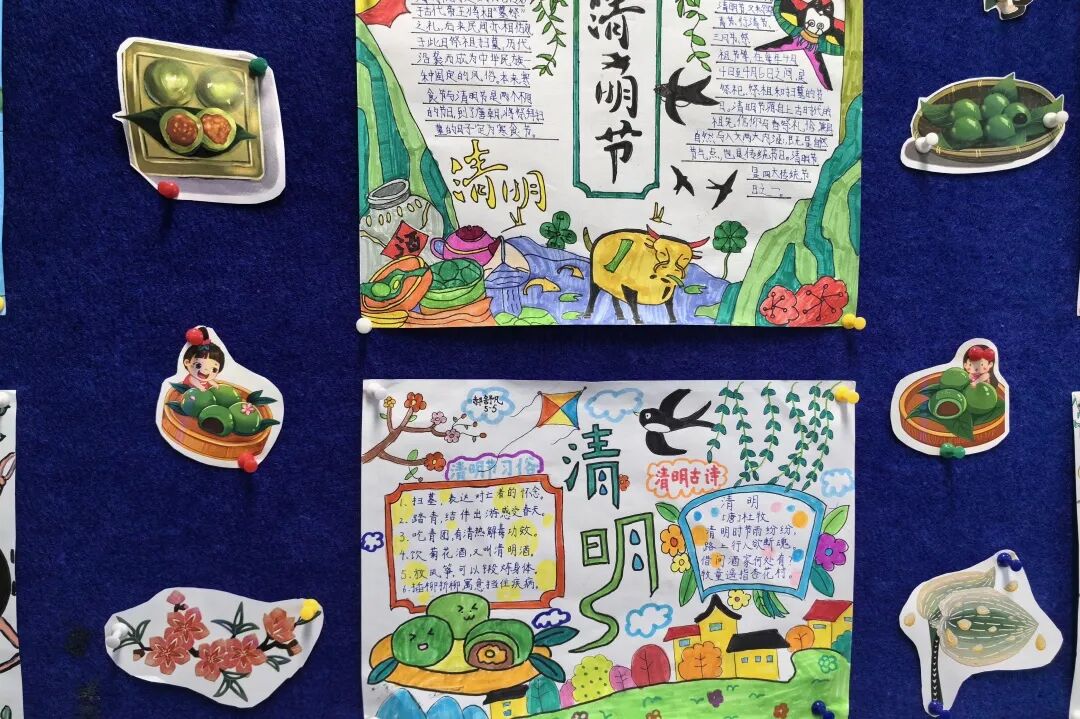 古代帝王将相"墓祭"
之礼，后来民间亦相仿效
于此日祭祖扫墓，历代
沿袭而成为中华民族一
种固定的风俗。本来寒
食节与清明节是两个不相
的节日，到了唐朝，将祭拜扫
墓的日子定为寒食节。
清明节
清明
三月节、祭
祖节等，在每年4月
4日至4月6日之间，是
祭祀、祭祖和扫墓的节
日。清明节源自上古时代的
祖先信仰与春祭礼俗，兼具
自然与人文两大内涵，既是自然
节气点，也是传统节日。清明节
是四大传统节
日之一。
酒
5-5
清明
清明节习俗
1. 扫墓，表达对亡者的怀念。
2. 踏青，结伴出游感受春天。
3. 吃青团，有清热解毒功效。
4. 饮菊花酒，又叫清明酒。
5. 放风筝，可以锻炼身体。
6. 插柳折柳寓意挡住疾病。
清明古诗
清明
[唐]杜牧
清明时节雨纷纷，
路上行人欲断魂。
借问酒家何处有？
牧童遥指杏花村。